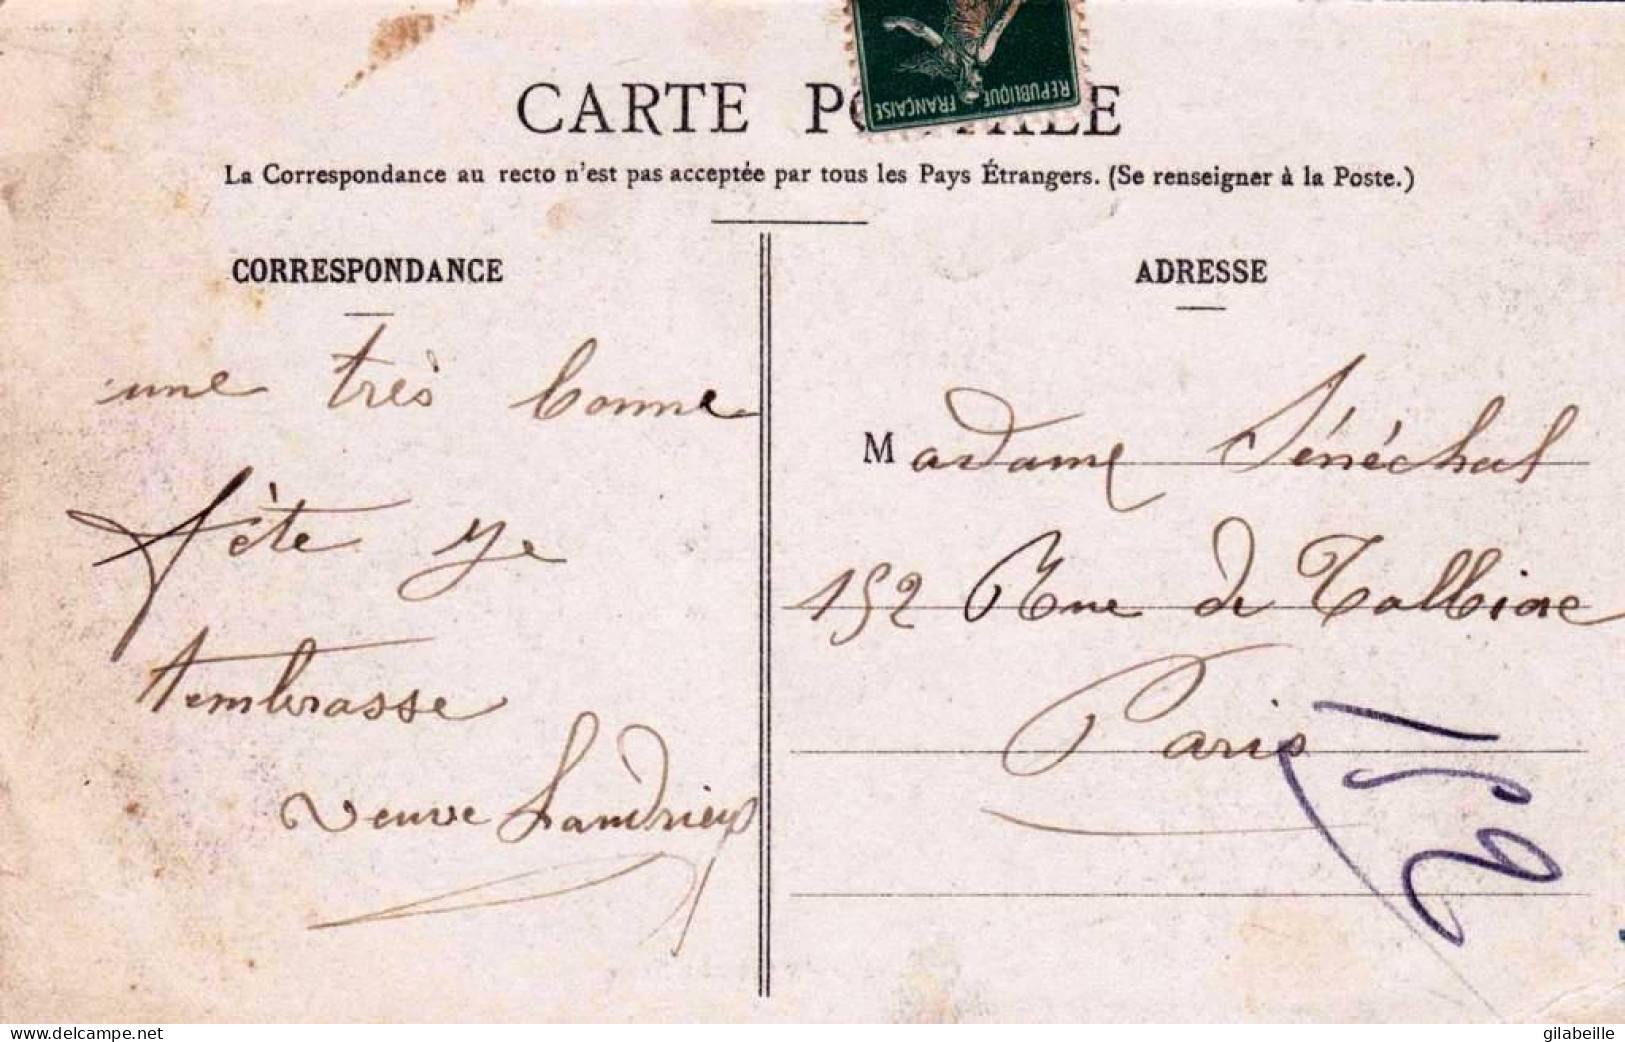 CARTE POSTALE
REPUBLIQUE FRANÇAISE
La Correspondance au recto n'est pas acceptée par tous les Pays Étrangers. (Se renseigner à la Poste.)
CORRESPONDANCE
une très bonne
fête je
t'embrasse
veuve Landrieux
ADRESSE
Madame Sénéchal
152 Rue de Tolbiac
Paris
152
delcampe.net
gilabeille